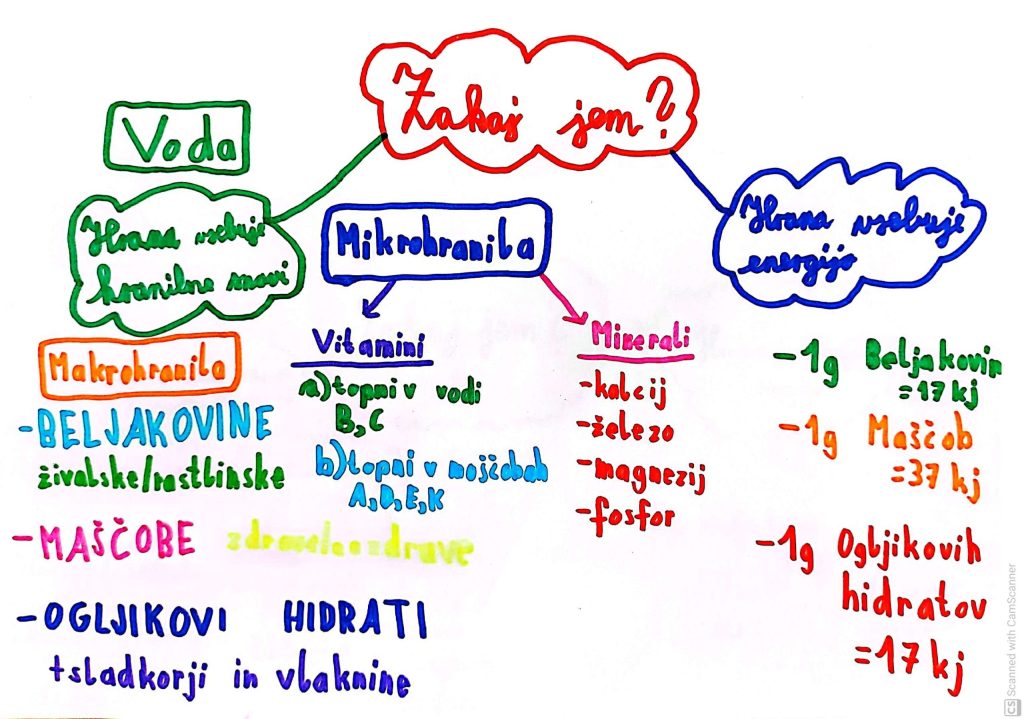 Zakaj jem?
Voda
Hrana vsebuje
hranilne snovi
Mikrohranila
Hrana vsebuje
energijo
Makrohranila
-BELJAKOVINE
živalske/rastlinske
-MAŠČOBE
-OGLJIKOVI HIDRATI
+sladkorji in vlaknine
Vitamini
a)topni v vodi
B,C
b)topni v mojčobah
A,D,E,K
Minerali
-kalcij
-železo
-magnezij
-fosfor
-1g Beljakovin
=17 kj
-1g Maščob
=37 kj
-1g Ogljikovih
hidratov
=17 kj
CS Scanned with CamScanner